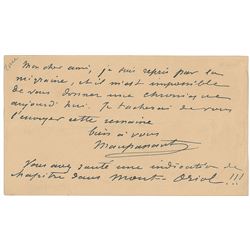 Mon cher ami, je suis repris par la
migraine, et il m'est impossible
de vous donner une chronique
aujourd'hui. Je tacherai de vous
l'envoyer cette semaine
bien à vous
Maupassant
Vous avez sauté une indication de
chapitre dans Mont-Oriol !!!